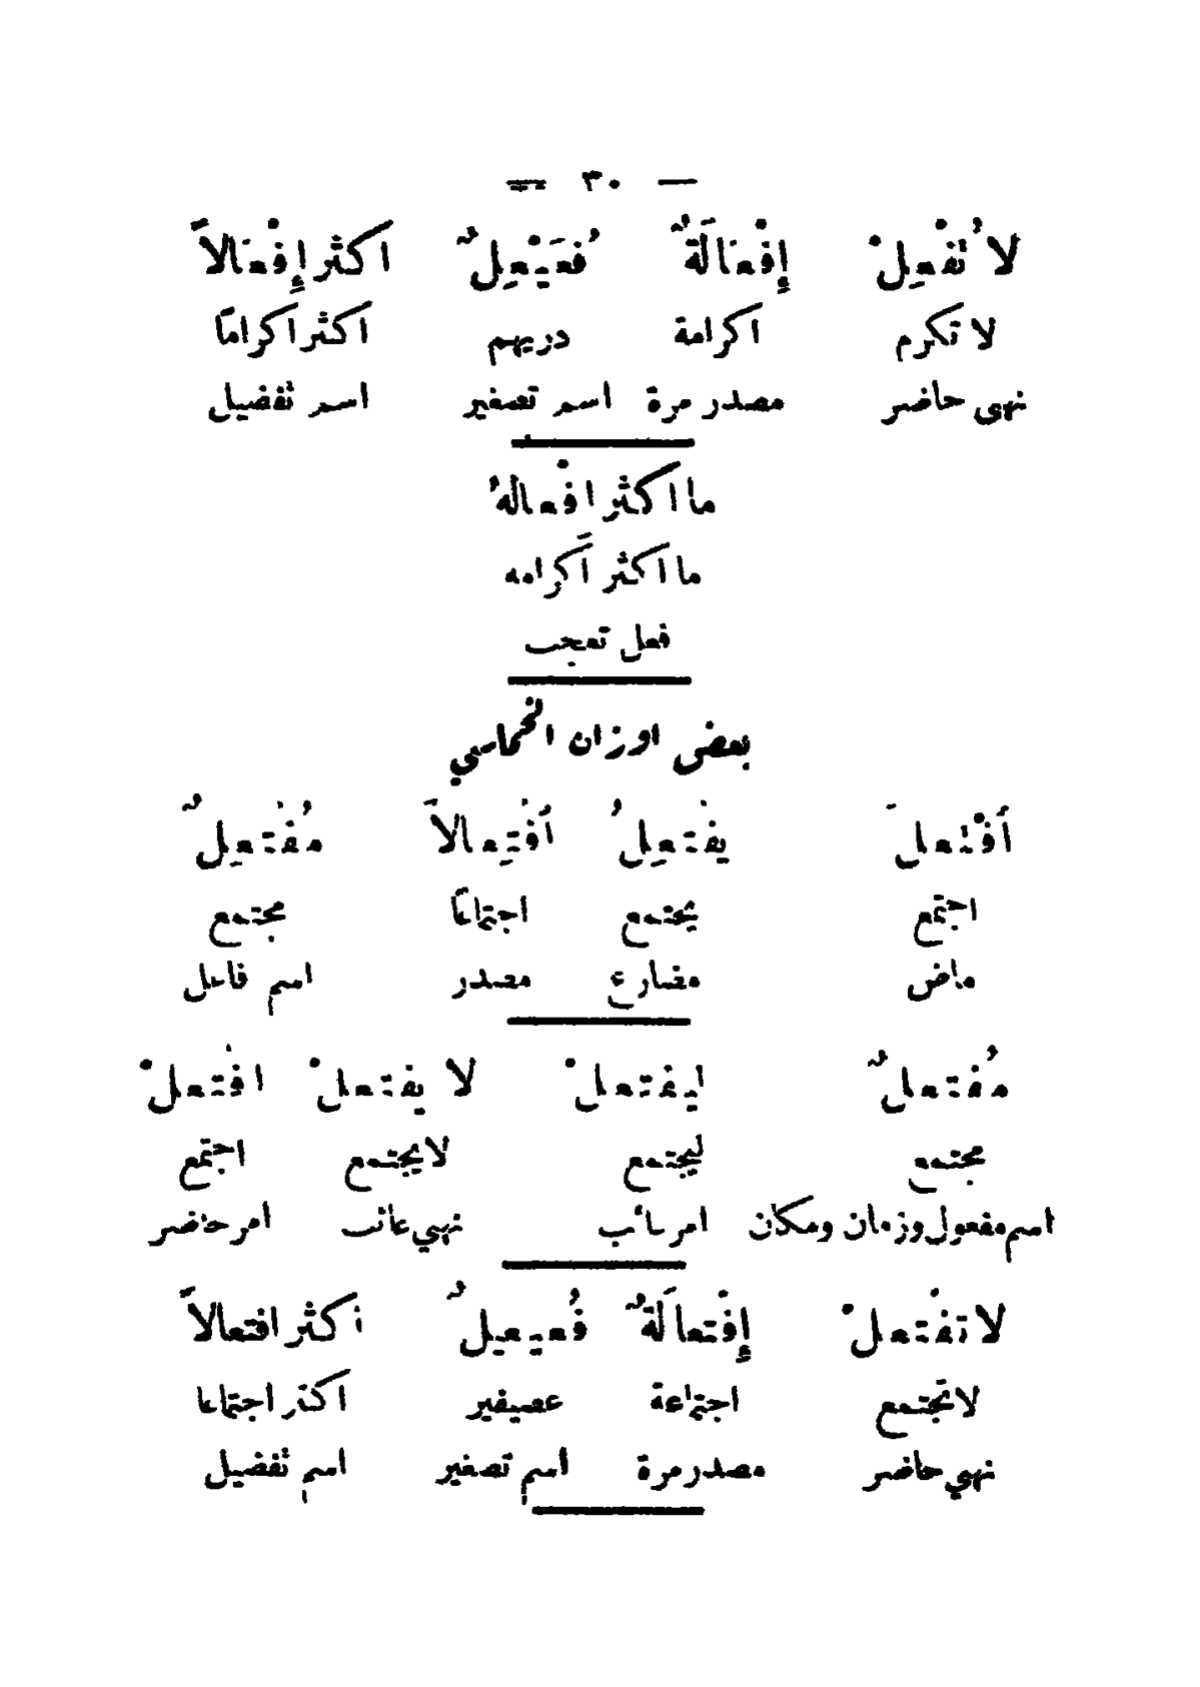 — ٣٠ —
لا تُفْعِلْ إِفْعَالَةٌ فُعَيْعِلٌ اكثر إِفْعَالاً
لا تكرم اكرامة دريهم اكثر اكرامًا
نهى حاضر مصدر مرة اسم تصغير اسم تفضيل
ما اكثر افْعالهُ
ما اكثر اكرامه
فعل تعجب
بعض اوزان الخماسي
أفْتعلَ يفْتعِلُ أفْتِعالاً مُفْتعِلٌ
اجتمع يجتمع اجتماعًا مجتمع
ماض مضارع مصدر اسم فاعل
مُفتعلٌ ليفتعلْ لا يفتعلْ افْتعلْ
مجتمع ليجتمع لا يجتمع اجتمع
اسم مفعول وزمان ومكان امر غائب نهي غائب امر حاضر
لا تفْتعلْ إِفْتعالَةٌ فُعيعيلٌ اكثر افتعالاً
لا تجتمع اجتماعة عصيفير اكثر اجتماعا
نهي حاضر مصدر مرة اسم تصغير اسم تفضيل